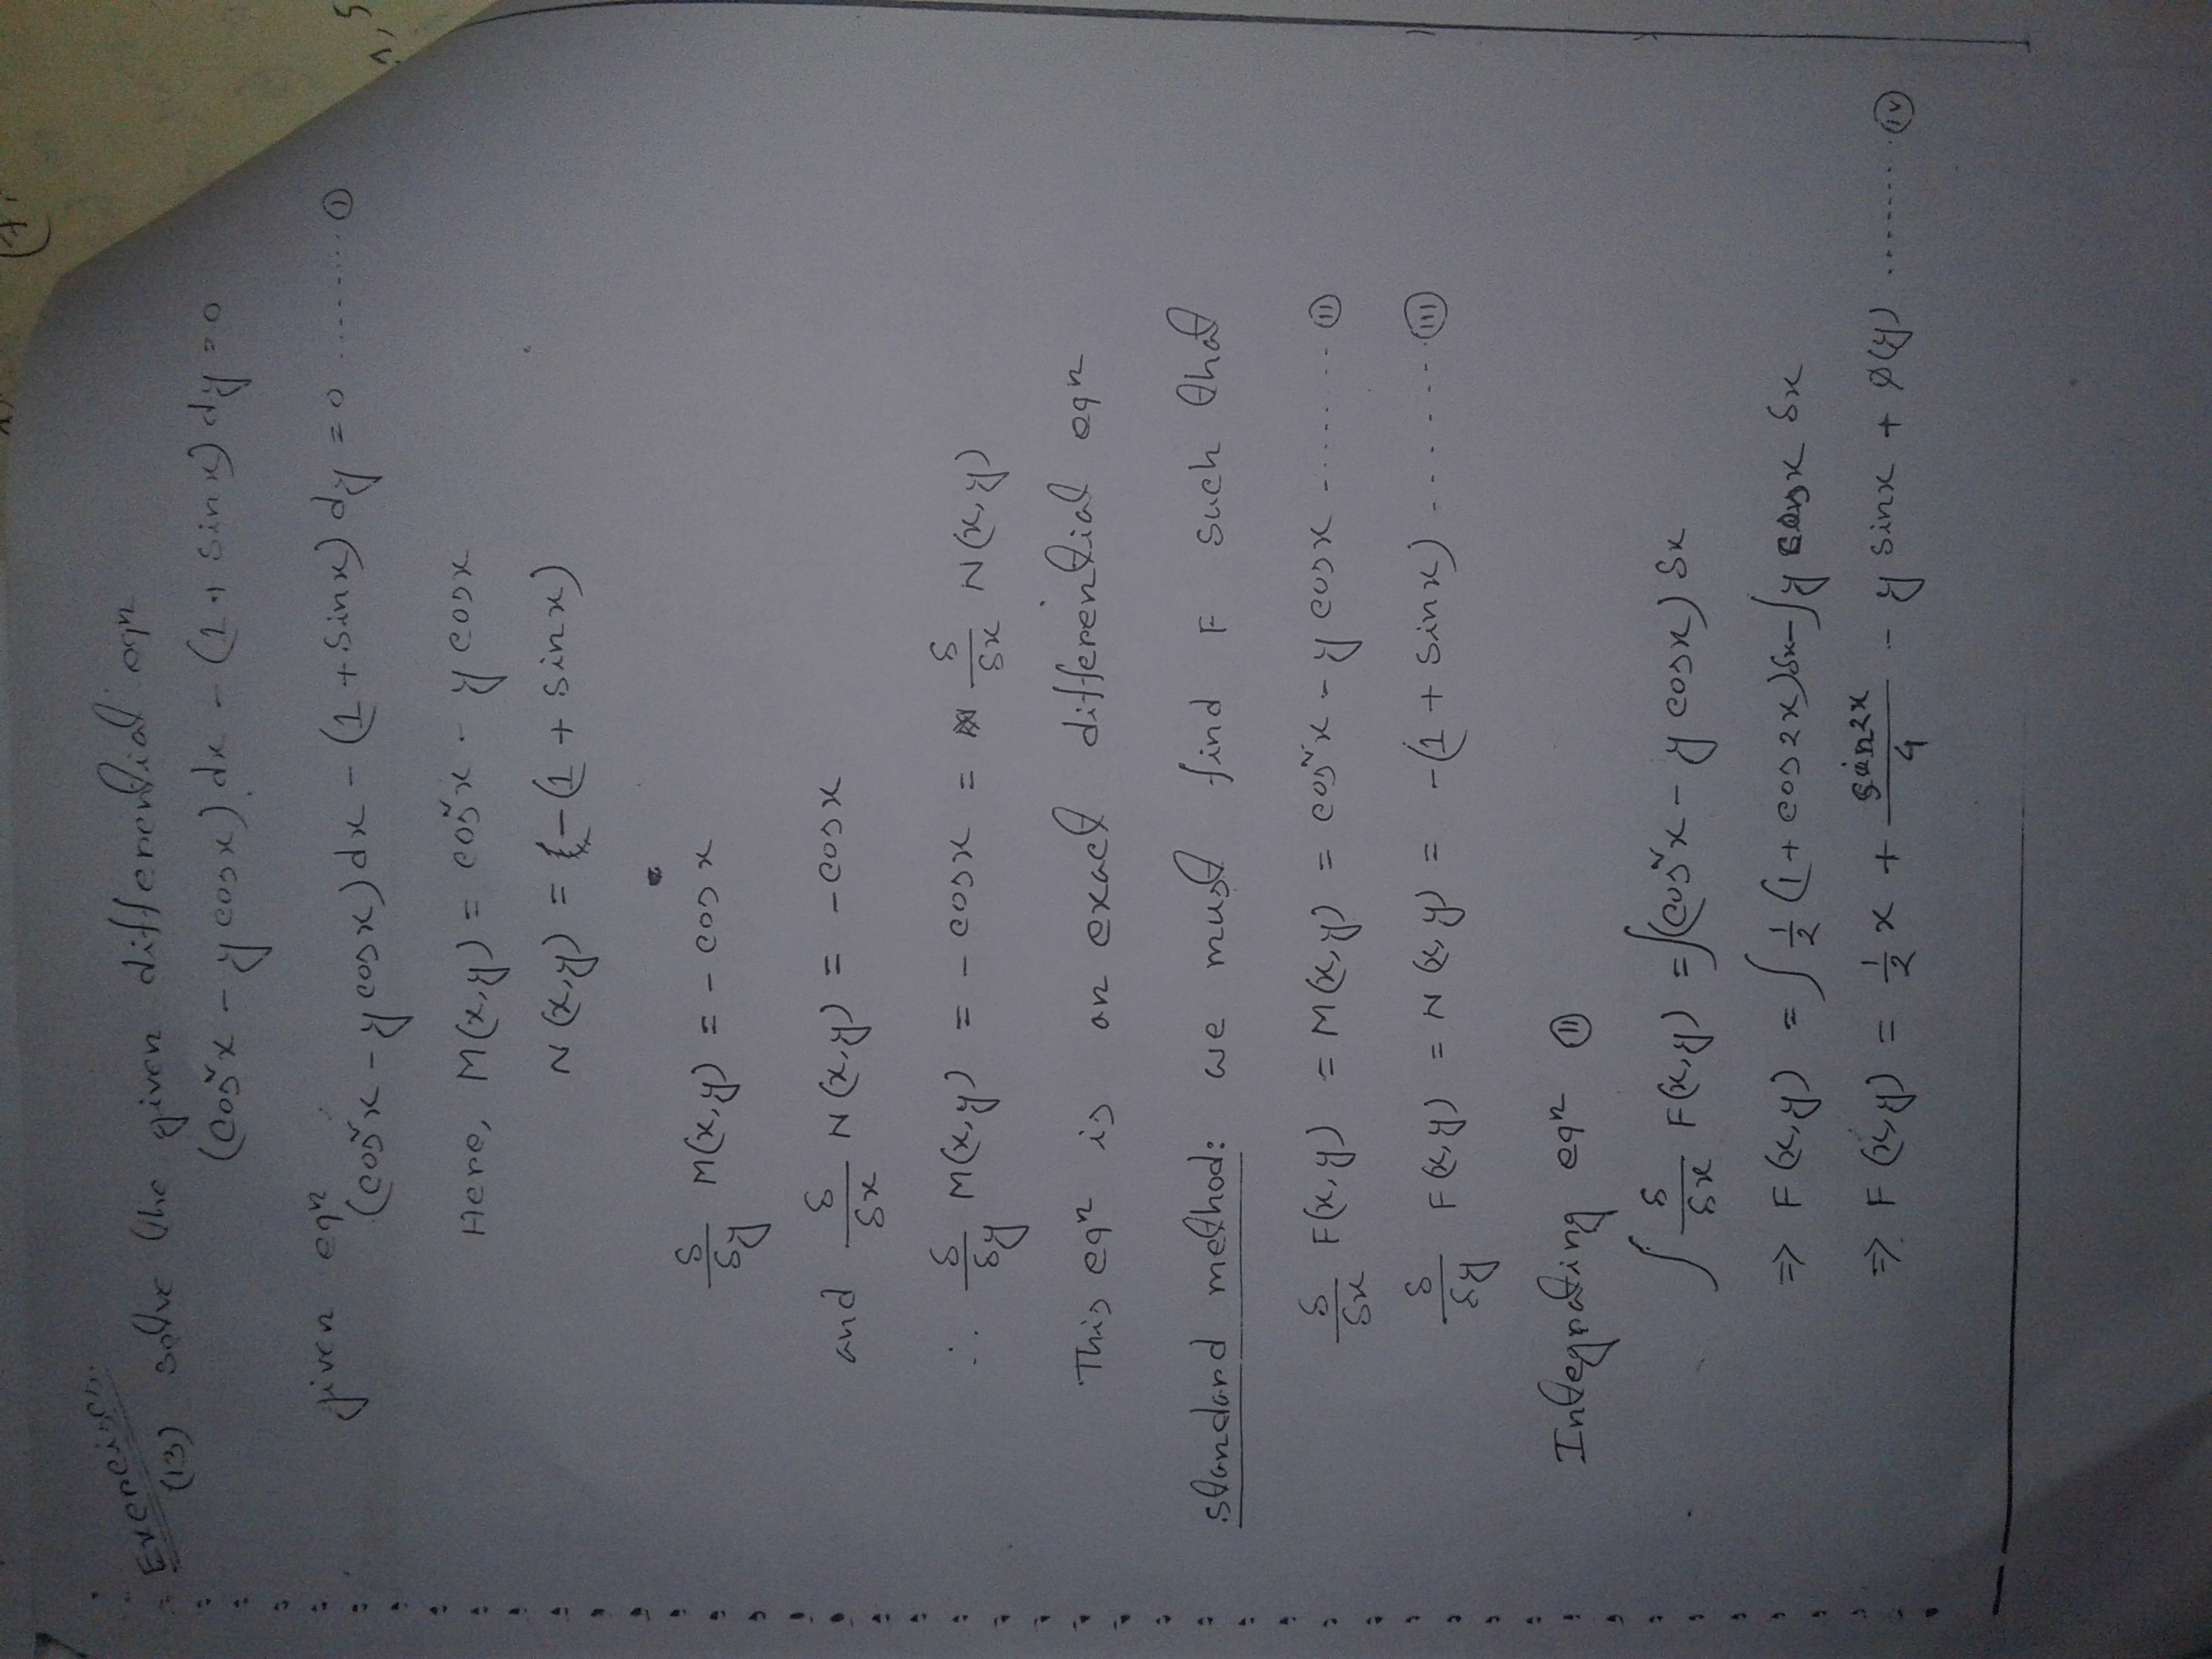 Exercises.
(13) solve the given differential eqn
(cos²x - y cosx) dx - (1 + sinx) dy = 0
given eqn
(cos²x - y cosx) dx - (1 + sinx) dy = 0 ........ (i)
Here, M(x,y) = cos²x - y cosx
N(x,y) = -(1 + sinx)
δ/δy M(x,y) = - cosx
and δ/δx N(x,y) = - cosx
∴ δ/δy M(x,y) = - cosx = δ/δx N(x,y)
This eqn is an exact differential eqn
standard method: we must find F such that
δ/δx F(x,y) = M(x,y) = cos²x - y cosx ........ (ii)
δ/δy F(x,y) = N(x,y) = -(1 + sinx) ........ (iii)
Integrating eqn (ii)
∫ δ/δx F(x,y) = ∫(cos²x - y cosx) δx
⇒ F(x,y) = ∫ 1/2 (1 + cos2x)δx - ∫y cosx δx
⇒ F(x,y) = 1/2 x + sin2x/4 - y sinx + φ(y) ........ (iv)